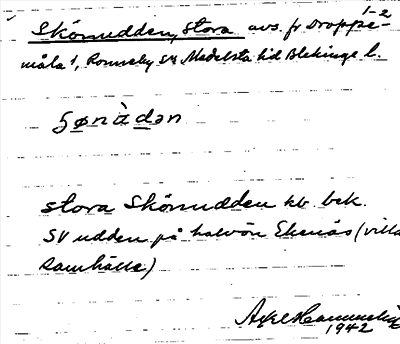 Skönudden, Stora avs. fr Droppe-
1-2
måla 1, Ronneby sn Medelsta hd Blekinge l.
sønàdən
stora Skönudden kb bek.
SV udden på halvön Ekenäs (villa
samhälle)
Axel
1942